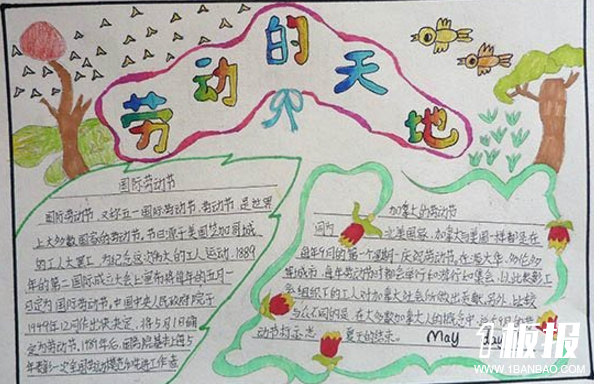 劳动的天地
国际劳动节
国际劳动节，又称五一国际劳动节、劳动节，是世界
上大多数国家的劳动节。节日源于美国芝加哥城
的工人大罢工，为纪念这次伟大的工人运动，1889
年的第二国际成立大会上宣布将每年的五月一
日定为国际劳动节。中国中央人民政府政务院于
1949年12月作出决定，将5月1日确
定为劳动节。1989年后，国务院基本上每5
年
加拿大的劳动节
同为北美国家，加拿大与美国一样都是在
每年9月的第一个星期一庆祝劳动节。在渥太华、多伦多
等城市，每年劳动节时都会举行和游行和集会，以此来彰工
会组织下的工人对加拿大社会所做出贡献。另外，比较
与众不同的是，在大多数加拿大人的概念中，
动节标志 夏天的结束。 May day
1板报
WWW.1BANBAO.COM